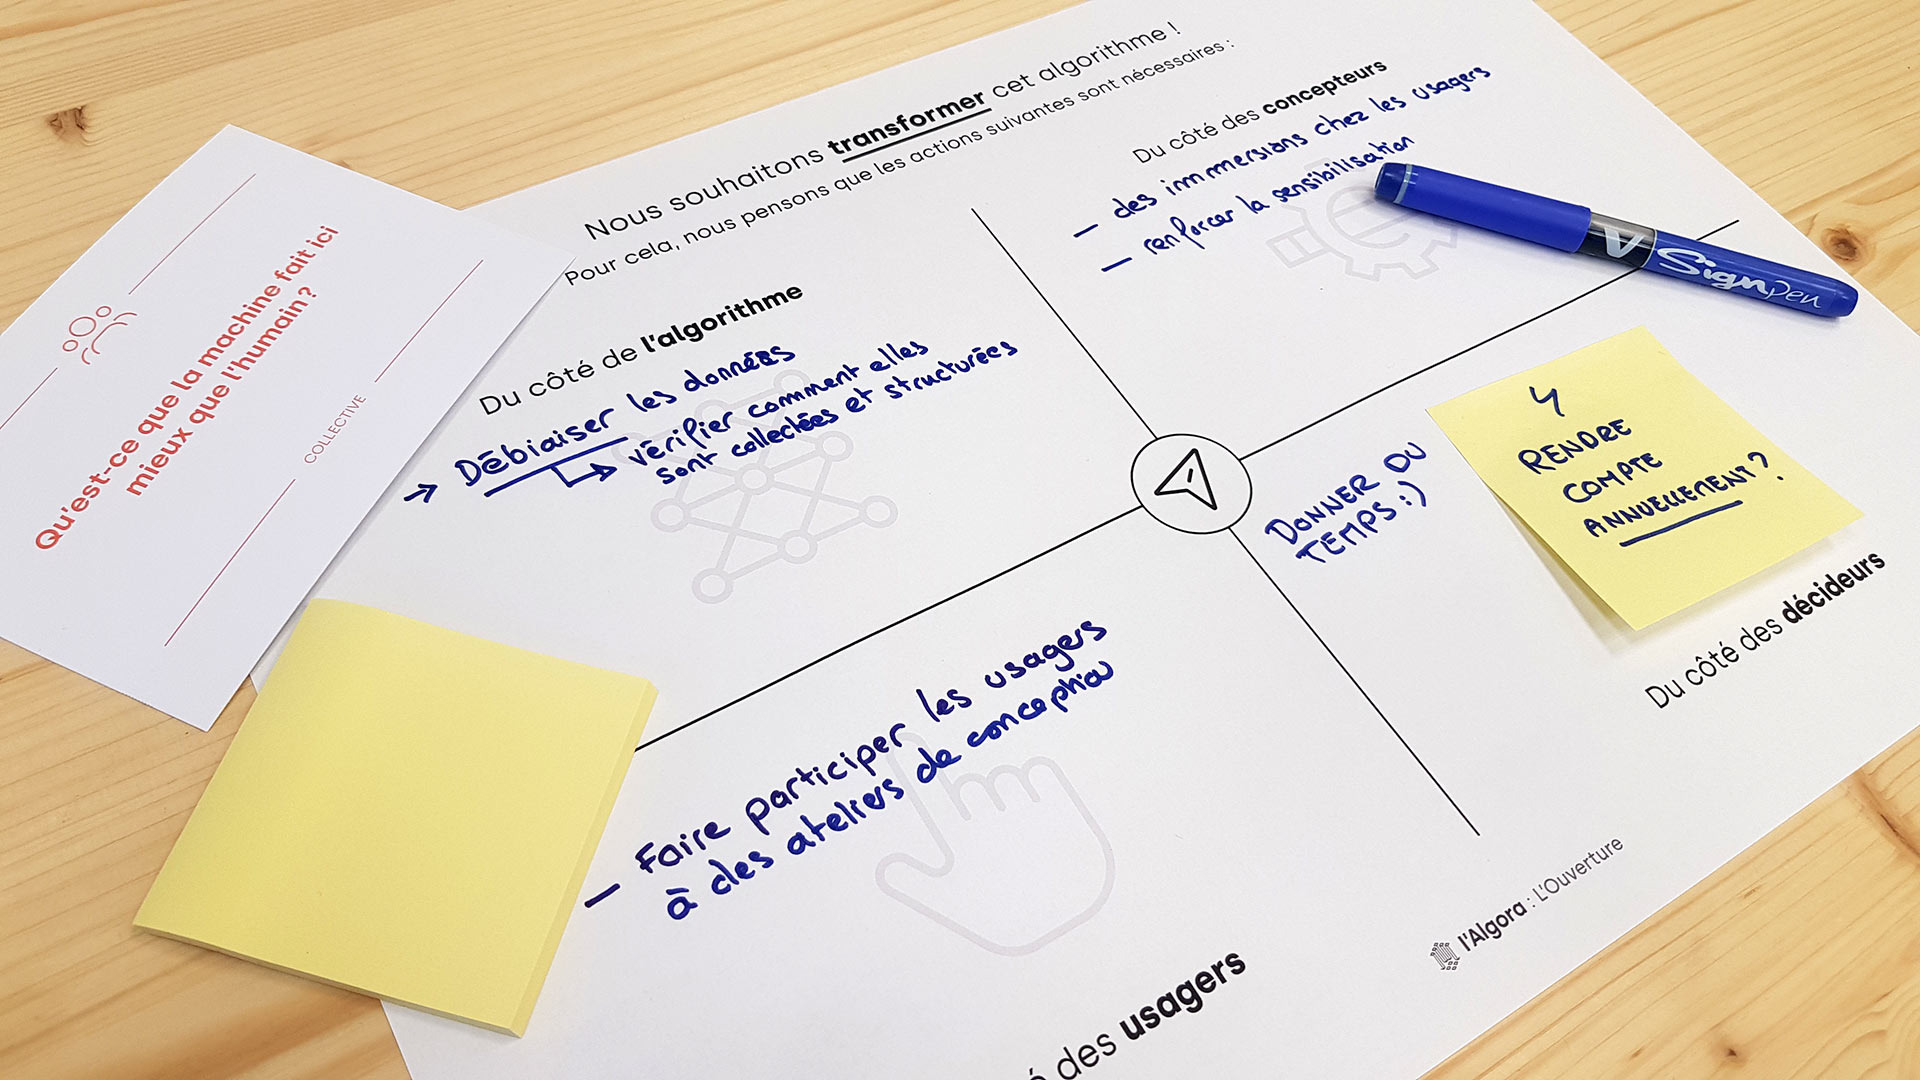 Nous souhaitons transformer cet algorithme !
Pour cela, nous pensons que les actions suivantes sont nécessaires :
Du côté de l'algorithme
→ Débiaiser les données
vérifier comment elles
sont collectées et structurées
Du côté des concepteurs
— des immersions chez les usagers
— renforcer la sensibilisation
V Signpen
DONNER DU
TEMPS :)
RENDRE
COMPTE
ANNUELLEMENT ?
Du côté des décideurs
— Faire participer les usagers
à des ateliers de conception
des usagers
l'Algora : L'Ouverture
Qu'est-ce que la machine fait ici
mieux que l'humain ?
COLLECTIVE